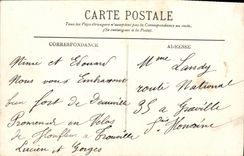 CARTE POSTALE
Tous les Pays étrangers n'acceptent pas la Correspondance au recto.
(Se renseigner à la Poste)
CORRESPONDANCE
ADRESSE
Mimi et Edouard
Nous vous Embrassons
bien fort de Deauville
Promenade en Vélos
de Honfleur à Trouville
Lucien et Gorges
Mme Landy
route National
35 a Graville
Ste Honorine